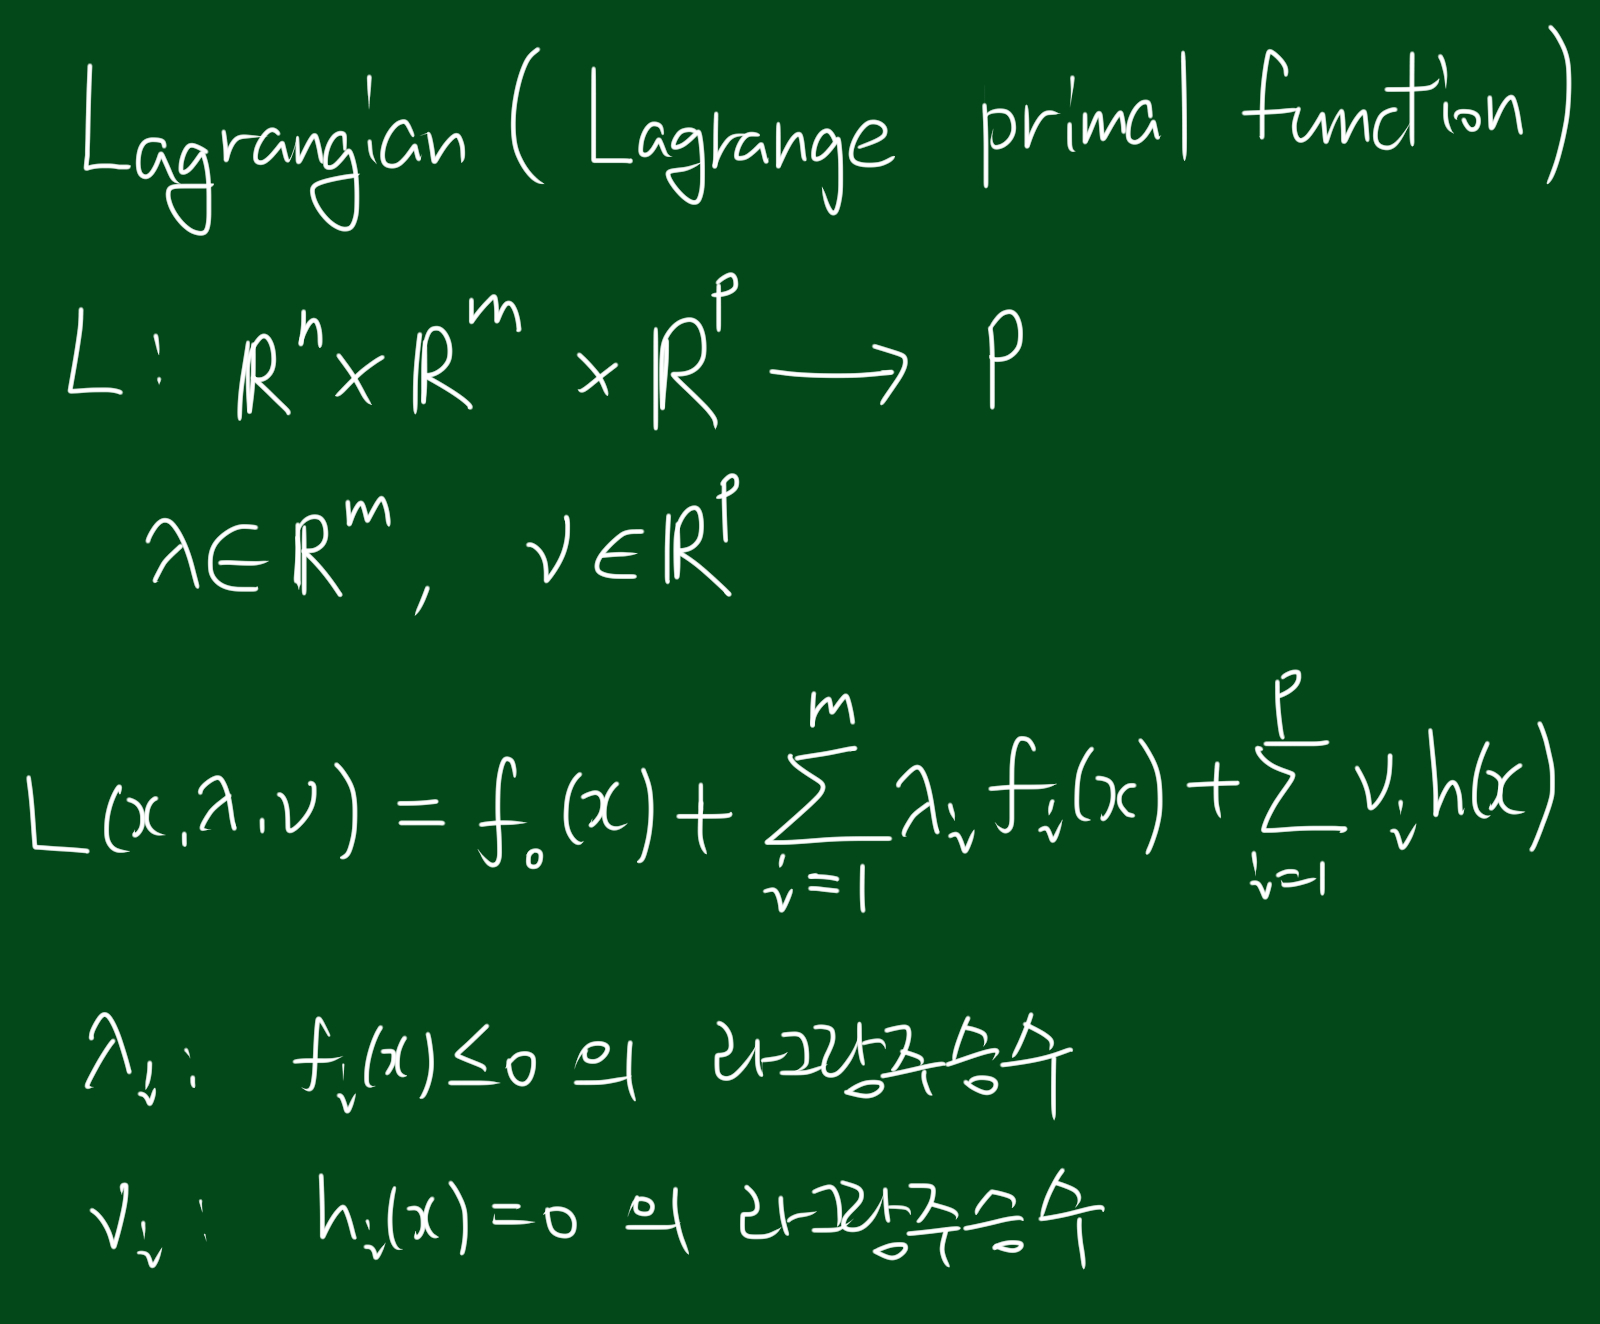 Lagrangian (Lagrange primal function)
L: ℝⁿ × ℝᵐ × ℝᵖ → P
λ∈ℝᵐ, ν∈ℝᵖ
L(x,λ,ν) = f₀(x) + ∑_{i=1}^{m} λᵢ fᵢ(x) + ∑_{i=1}^{p} νᵢ h(x)
λᵢ: fᵢ(x)≤0 의 라그랑주승수
νᵢ: hᵢ(x)=0 의 라그랑주승수